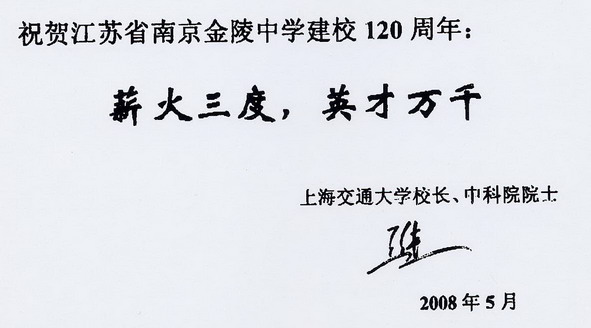 祝贺江苏省南京金陵中学建校 120 周年：
薪火三度，英才万千
上海交通大学校长、中科院院士
2008 年 5 月